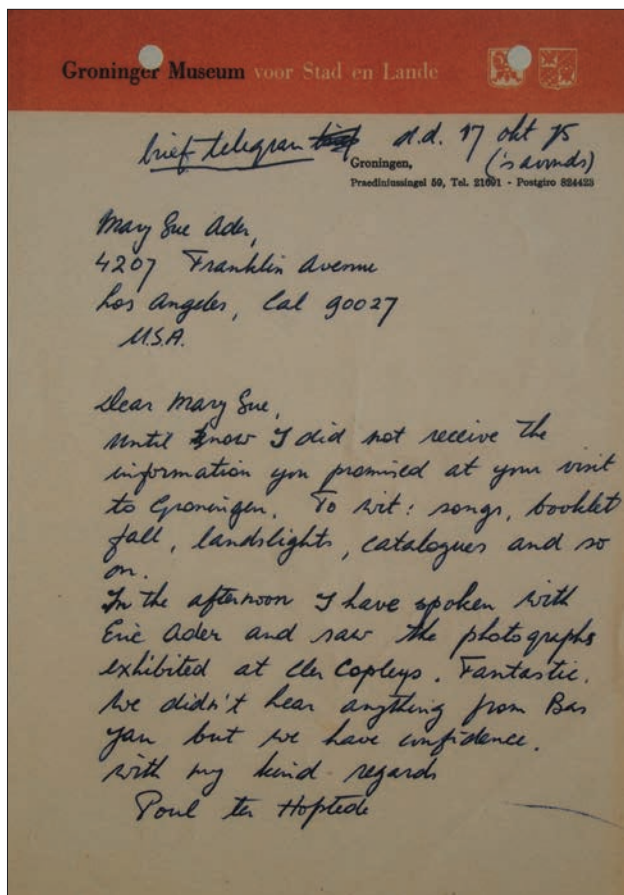 Groninger Museum voor Stad en Lande
brief telegram d.d. 17 okt 75
Groningen, ('s avonds)
Praediniussingel 59, Tel. 21691 - Postgiro 824423
Mary Sue Ader,
4207 Franklin Avenue
Los Angeles, Cal 90027
U.S.A.
Dear Mary Sue,
Until now I did not receive the
information you promised at your visit
to Groningen. To wit: songs, booklet
fall, landslights, catalogues and so
on.
In the afternoon I have spoken with
Eric Ader and saw the photographs
exhibited at Copleys. Fantastic.
We didn't hear anything from Bas
Jan but we have confidence.
With my kind regards
Poul ter Hofstede